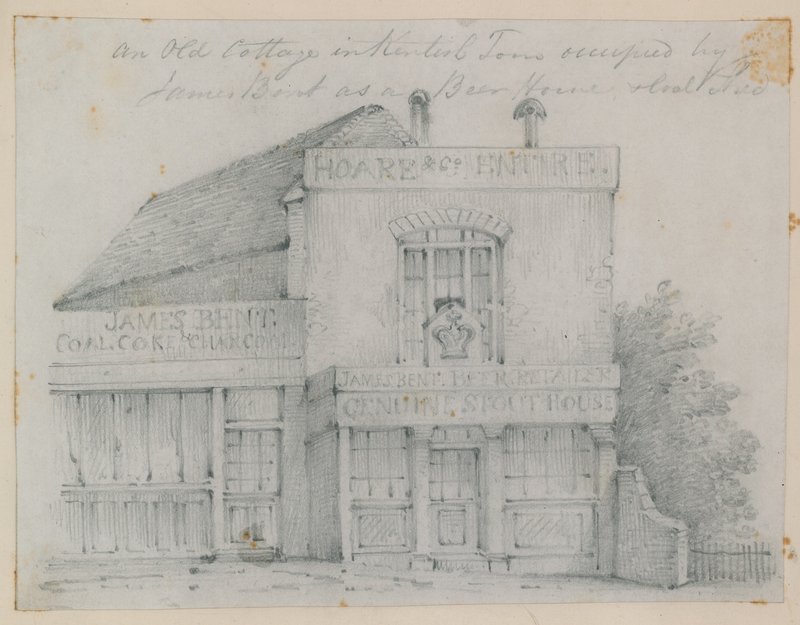 An Old Cottage in Kentish Town occupied by
James Bent as a Beer House
HOARE & Co. ENTIRE.
JAMES BENT.
COAL. COKE & CHARCOAL
JAMES BENT. BEER. RETAILER
GENUINE STOUT HOUSE